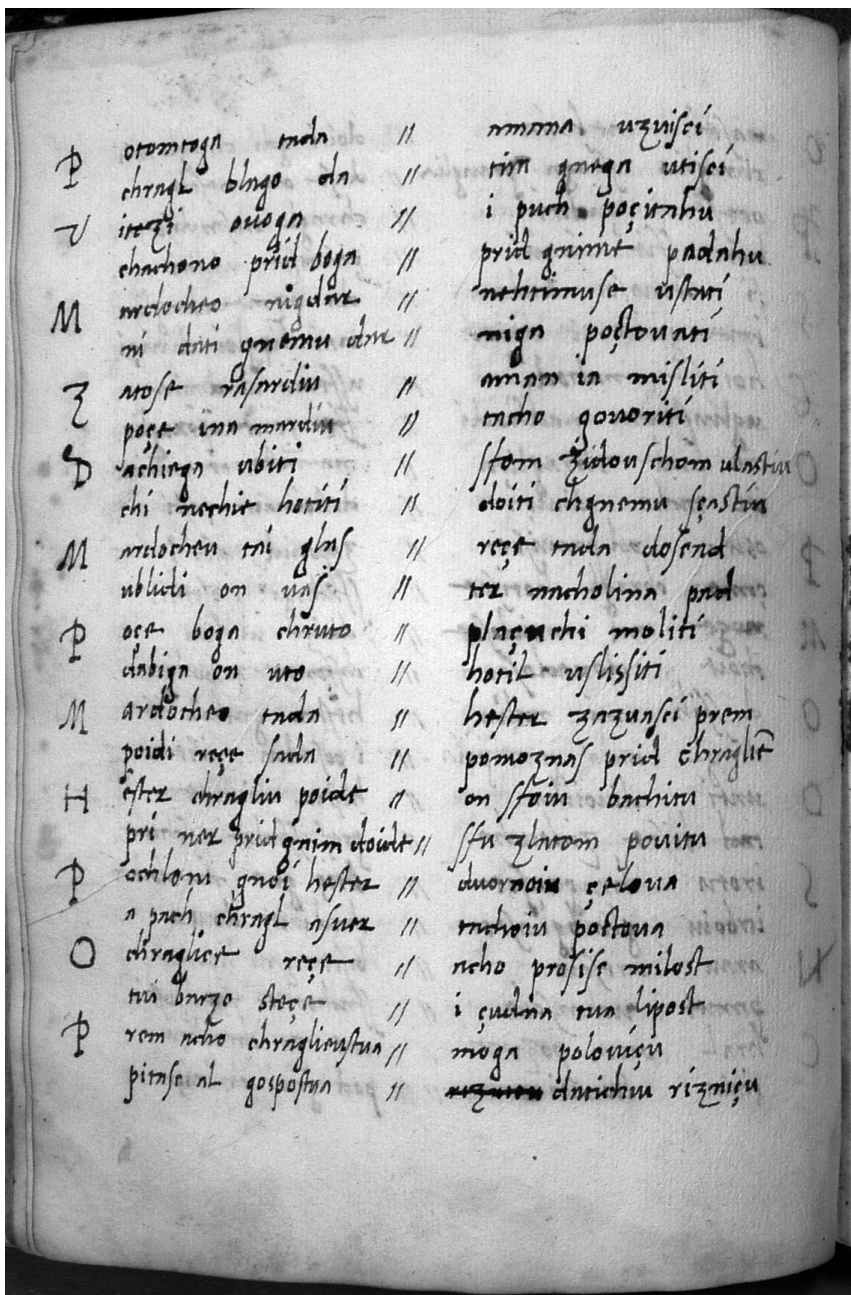 P otomtoga tada // amana uzuisci
chragl blago da // tira gnega utisci
V itezi ouoga // i puch poçitahu
chachono prid boga // prid gnime padahu
M ardocheo nigdar // nehtimuse ustati
ni dati gnemu dar // niga poçtouati
Z atose rasardiu // aman ia misliti
poçe ina mardiu // tacho gouoriti
D achiega ubiti // sfom zidouschom ulastiu
chi nechie hotiti // doiti chgnemu sçastiu
M ardocheu tai glas // reçe tada dosend
ublidi on uas // ter nacholina pad
P oçe boga chruto // plaçuchi moliti
dabiga on uto // hotil uslissiti
M ardocheo tada // hester zazuasci prem
poidi reçe sada // pomoznas prid chragliē
H ester chragliu poide // on sfoiu bachitu
pri ner prid gnim doide // sfu zlatom pouitu
P ochlonu gnoi hester // duornoiu çeloua
a pach chragl asuer // tachoiu poctoua
O chraglice reçe // acho prosise milost
tui barzo steçe // i çudna tua lipost
P rem acho chraglieustua // moga polouiçu
pitase al gospostua // datichiu rizniçu